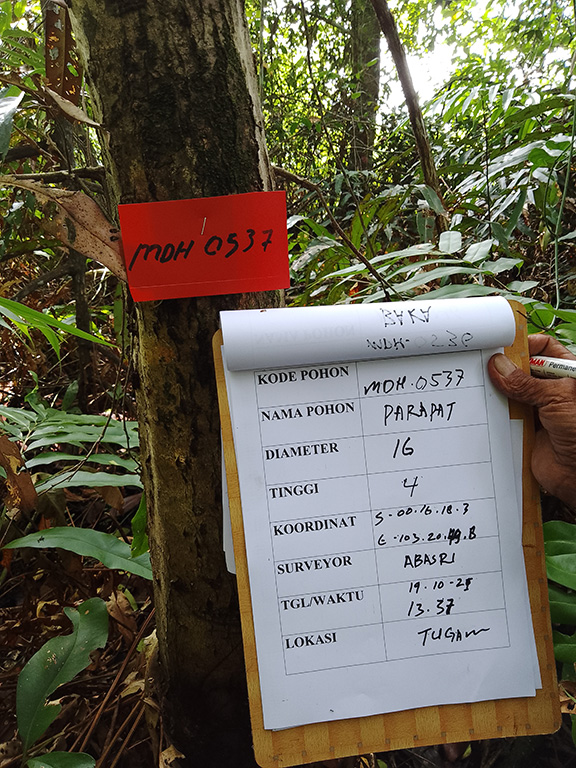 MDH 0537
KODE POHON MDH.0537
NAMA POHON PARAPAT
DIAMETER 16
TINGGI 4
KOORDINAT S-00.16.18.3
E-103.20.49.8
SURVEYOR ABASRI
TGL/WAKTU 19-10-25
13.37
LOKASI TUGAN
Permanent